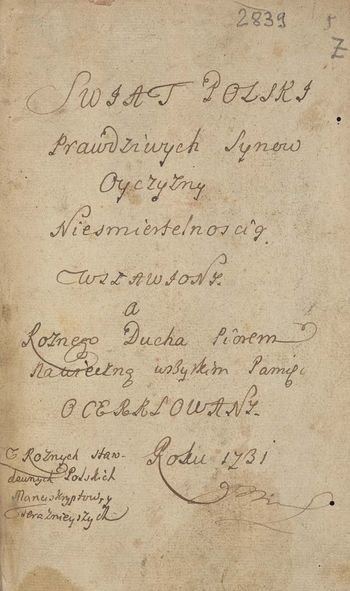 2839 5
Z
SWIAT POLSKI
Prawdziwych Synow
Oyczyzny
Niesmiertelnoscią
WSŁAWIONY.
a
Roznego Ducha Piorem
Na wieczną wszytkim Pamięć
OCERKLOWANY.
Z Roznych Staw-
dawnych Polskich
Manuskryptow, y
teraznieyszych.
Roku 1731